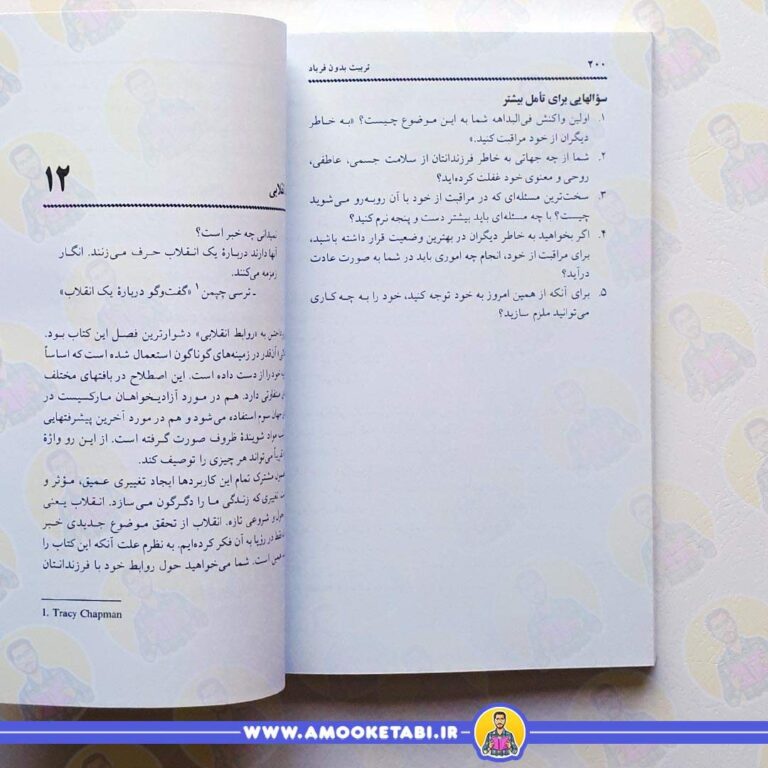 ۲۰۰
تربیت بدون فریاد
سؤالهایی برای تأمل بیشتر
۱. اولین واکنش فی‌البداهه شما به این موضوع چیست؟ «به خاطر
دیگران از خود مراقبت کنید.»
۲. شما از چه جهاتی به خاطر فرزندانتان از سلامت جسمی، عاطفی،
روحی و معنوی خود غفلت کرده‌اید؟
۳. سخت‌ترین مسئله‌ای که در مراقبت از خود با آن روبه‌رو می‌شوید
چیست؟ با چه مسئله‌ای باید بیشتر دست و پنجه نرم کنید؟
۴. اگر بخواهید به خاطر دیگران در بهترین وضعیت قرار داشته باشید،
برای مراقبت از خود، انجام چه اموری باید در شما به صورت عادت
درآید؟
۵. برای آنکه از همین امروز به خود توجه کنید، خود را به چه کاری
می‌توانید ملزم سازید؟
۱۲
نمیدانی چه خبر است؟
آنها دارند دربارهٔ یک انقلاب حرف می‌زنند. انگار
زمزمه می‌کنند.
ـ ترسی چپمن۱ «گفت‌وگو دربارهٔ یک انقلاب»
به «روابط انقلابی» دشوارترین فصل این کتاب بود.
آنقدر در زمینه‌های گوناگون استعمال شده است که اساساً
خود را از دست داده است. این اصطلاح در بافتهای مختلف
متفاوتی دارد. هم در مورد آزادیخواهان مارکسیست در
جهان سوم استفاده می‌شود و هم در مورد آخرین پیشرفتهایی
مواد شویندهٔ ظروف صورت گرفته است. از این رو واژهٔ
می‌تواند هر چیزی را توصیف کند.
مشترک تمام این کاربردها ایجاد تغییری عمیق، مؤثر و
تغییری که زندگی ما را دگرگون می‌سازد. انقلاب یعنی
و شروعی تازه. انقلاب از تحقق موضوع جدیدی خبر
در رؤیا به آن فکر کرده‌ایم. به نظرم علت آنکه این کتاب را
است. شما می‌خواهید حول روابط خود با فرزندانتان
1. Tracy Chapman
WWW.AMOOKETABI.IR